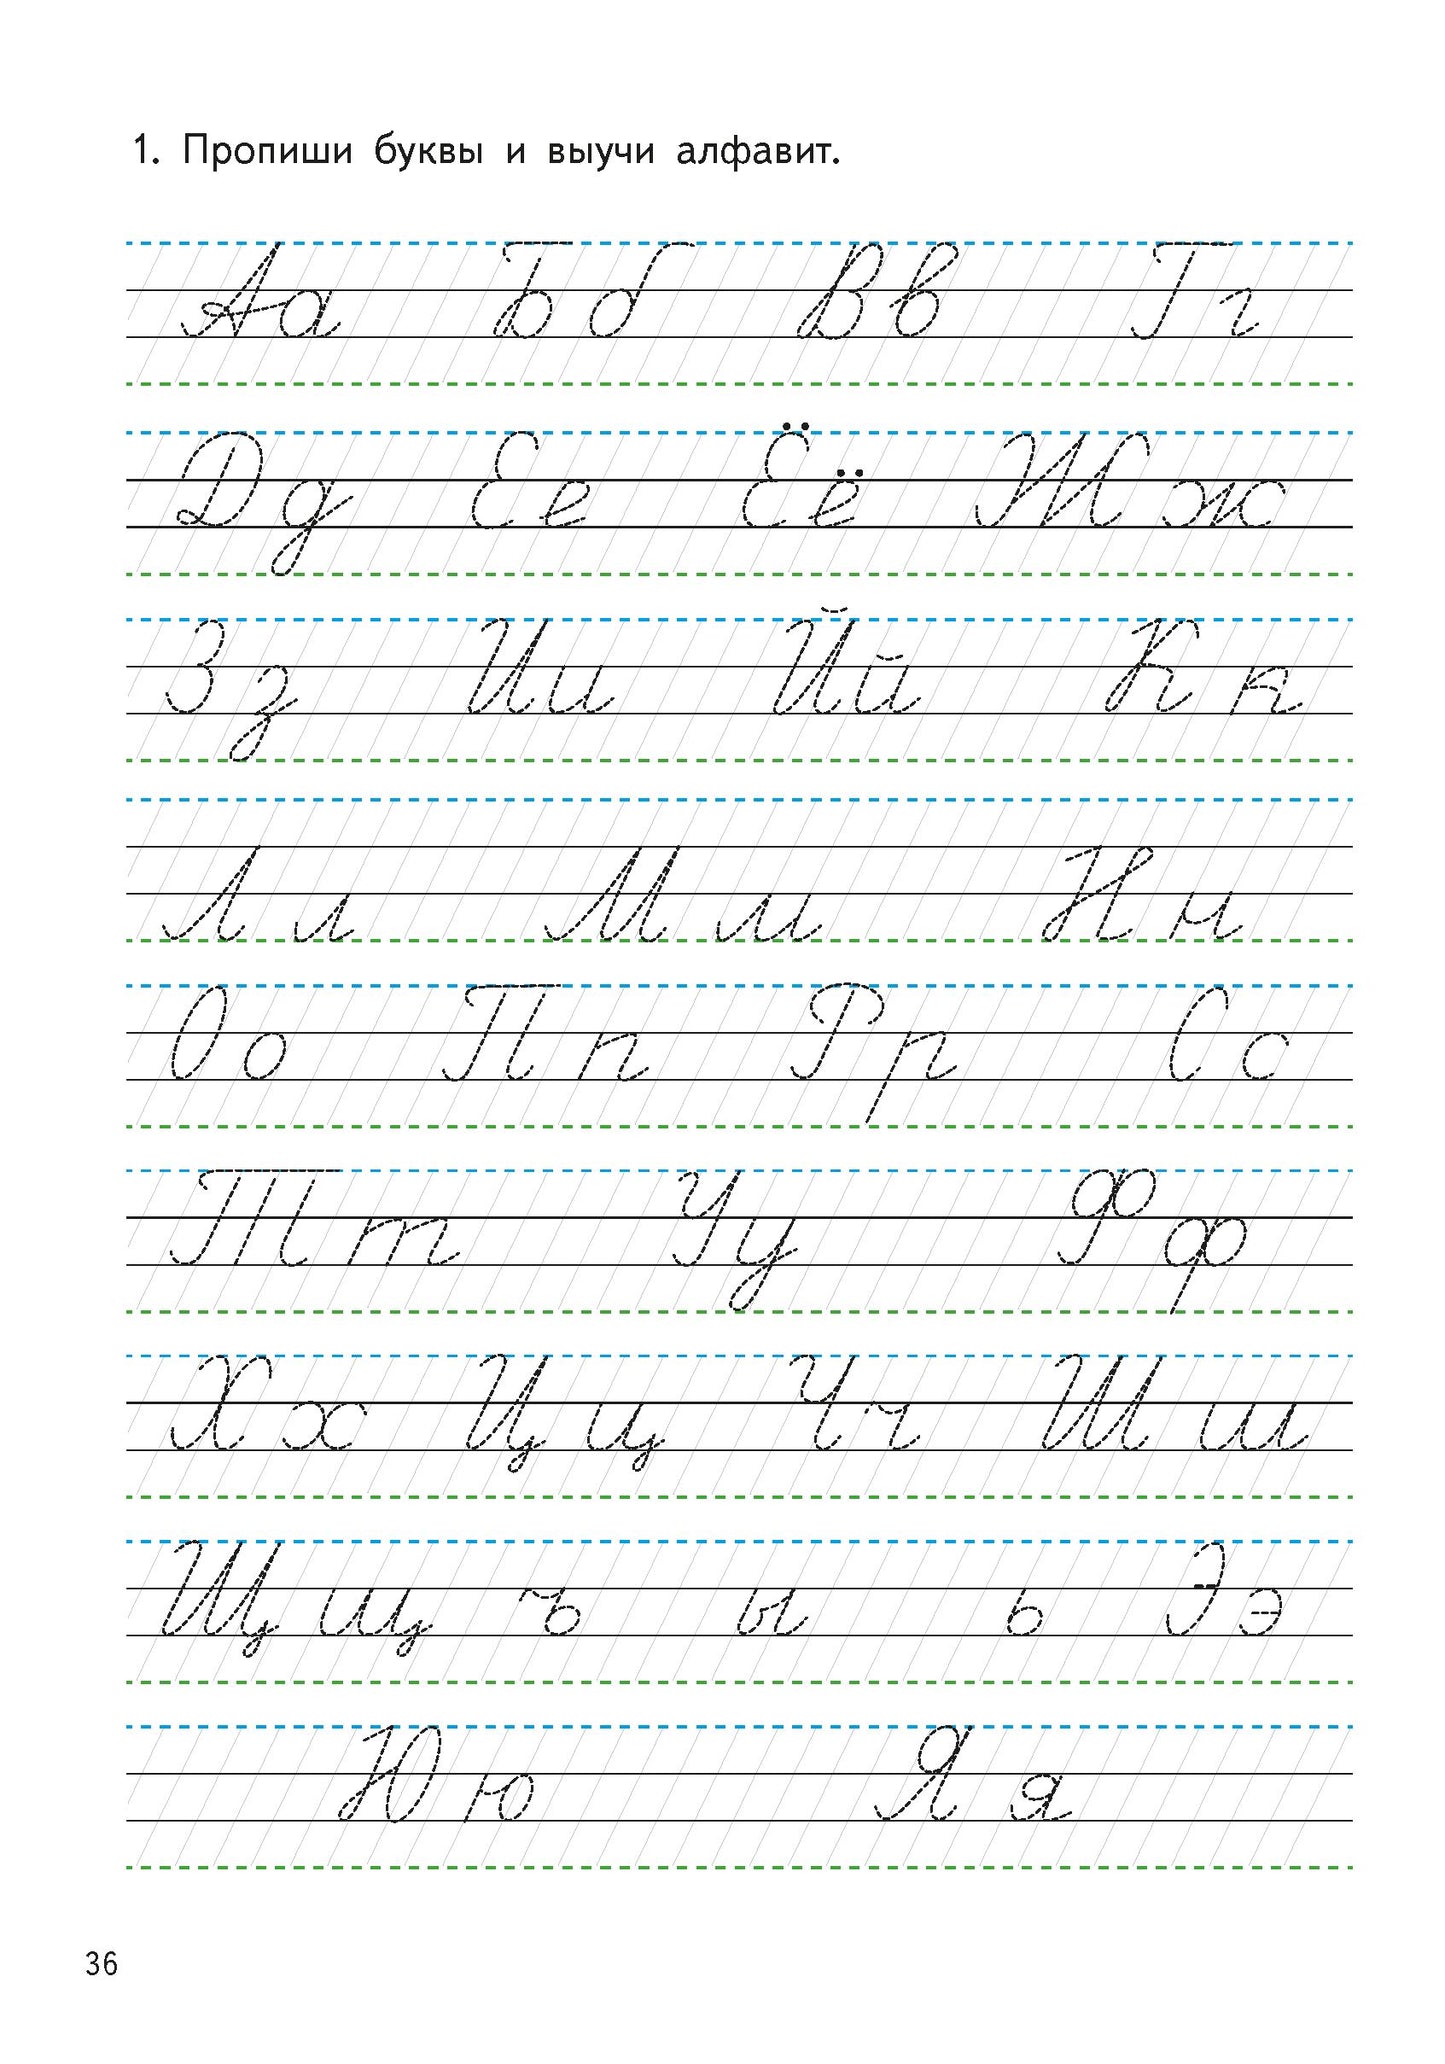 1. Пропиши буквы и выучи алфавит.
Аа Бб Вв Гг
Дд Ее Ёё Жж
Зз Ии Йй Кк
Лл Мм Нн
Оо Пп Рр Сс
Тт Уу Фф
Хх Цц Чч Шш
Щщ ъ ы ь Ээ
Юю Яя
36